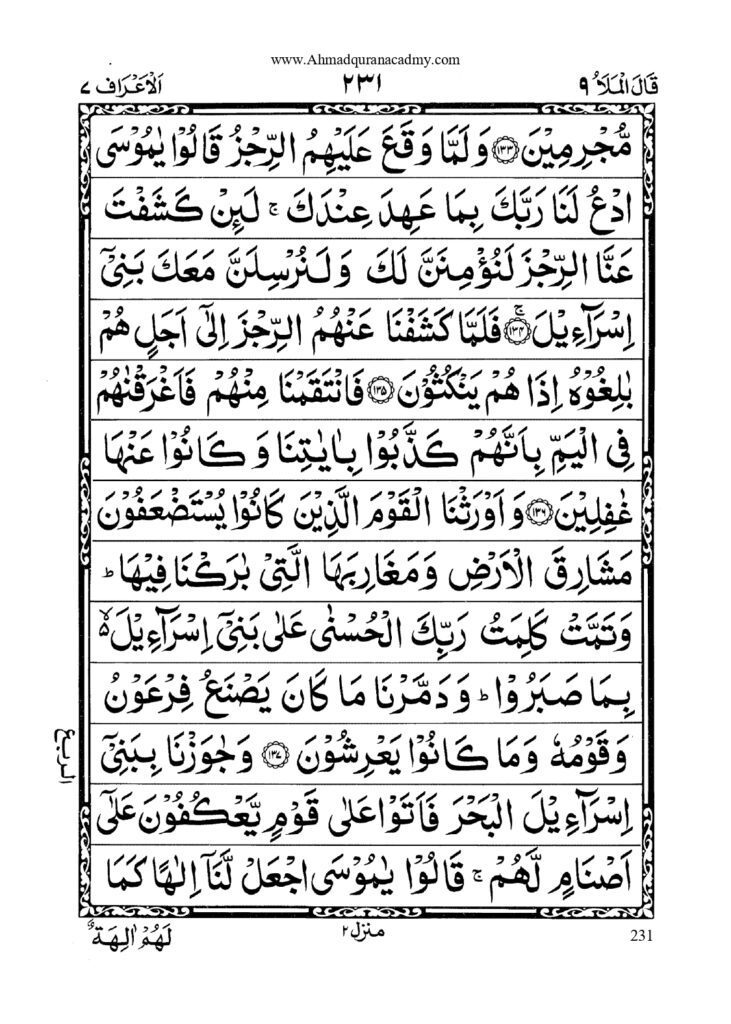 www.Ahmadquranacadmy.com
قَالَ الْمَلَاُ ٩ ٢٣١ اَلْاَعْرَاف ٧
مُّجْرِمِيْنَ ﴿١٣٣﴾ وَلَمَّا وَقَعَ عَلَيْهِمُ الرِّجْزُ قَالُوْا يٰمُوْسَى
ادْعُ لَنَا رَبَّكَ بِمَا عَهِدَ عِنْدَكَ ۚ لَئِنْ كَشَفْتَ
عَنَّا الرِّجْزَ لَنُؤْمِنَنَّ لَكَ وَلَنُرْسِلَنَّ مَعَكَ بَنِيْٓ
اِسْرَآءِيْلَ ۚ﴿١٣٤﴾ فَلَمَّا كَشَفْنَا عَنْهُمُ الرِّجْزَ اِلٰٓى اَجَلٍ هُمْ
بٰلِغُوْهُ اِذَا هُمْ يَنْكُثُوْنَ ﴿١٣٥﴾ فَانْتَقَمْنَا مِنْهُمْ فَاَغْرَقْنٰهُمْ
فِي الْيَمِّ بِاَنَّهُمْ كَذَّبُوْا بِاٰيٰتِنَا وَكَانُوْا عَنْهَا
غٰفِلِيْنَ ﴿١٣٦﴾ وَاَوْرَثْنَا الْقَوْمَ الَّذِيْنَ كَانُوْا يُسْتَضْعَفُوْنَ
مَشَارِقَ الْاَرْضِ وَمَغَارِبَهَا الَّتِيْ بٰرَكْنَا فِيْهَا ؕ
وَتَمَّتْ كَلِمَتُ رَبِّكَ الْحُسْنٰى عَلٰى بَنِيْٓ اِسْرَآءِيْلَ ۙ۬
بِمَا صَبَرُوْا ؕ وَدَمَّرْنَا مَا كَانَ يَصْنَعُ فِرْعَوْنُ
وَقَوْمُهٗ وَمَا كَانُوْا يَعْرِشُوْنَ ﴿١٣٧﴾ وَجٰوَزْنَا بِبَنِيْٓ
الربع
اِسْرَآءِيْلَ الْبَحْرَ فَاَتَوْا عَلٰى قَوْمٍ يَّعْكُفُوْنَ عَلٰٓى
اَصْنَامٍ لَّهُمْ ۚ قَالُوْا يٰمُوْسَى اجْعَلْ لَّنَآ اِلٰهًا كَمَا
لَهُمْ اٰلِهَةٌ ؕ منزل ٢ 231